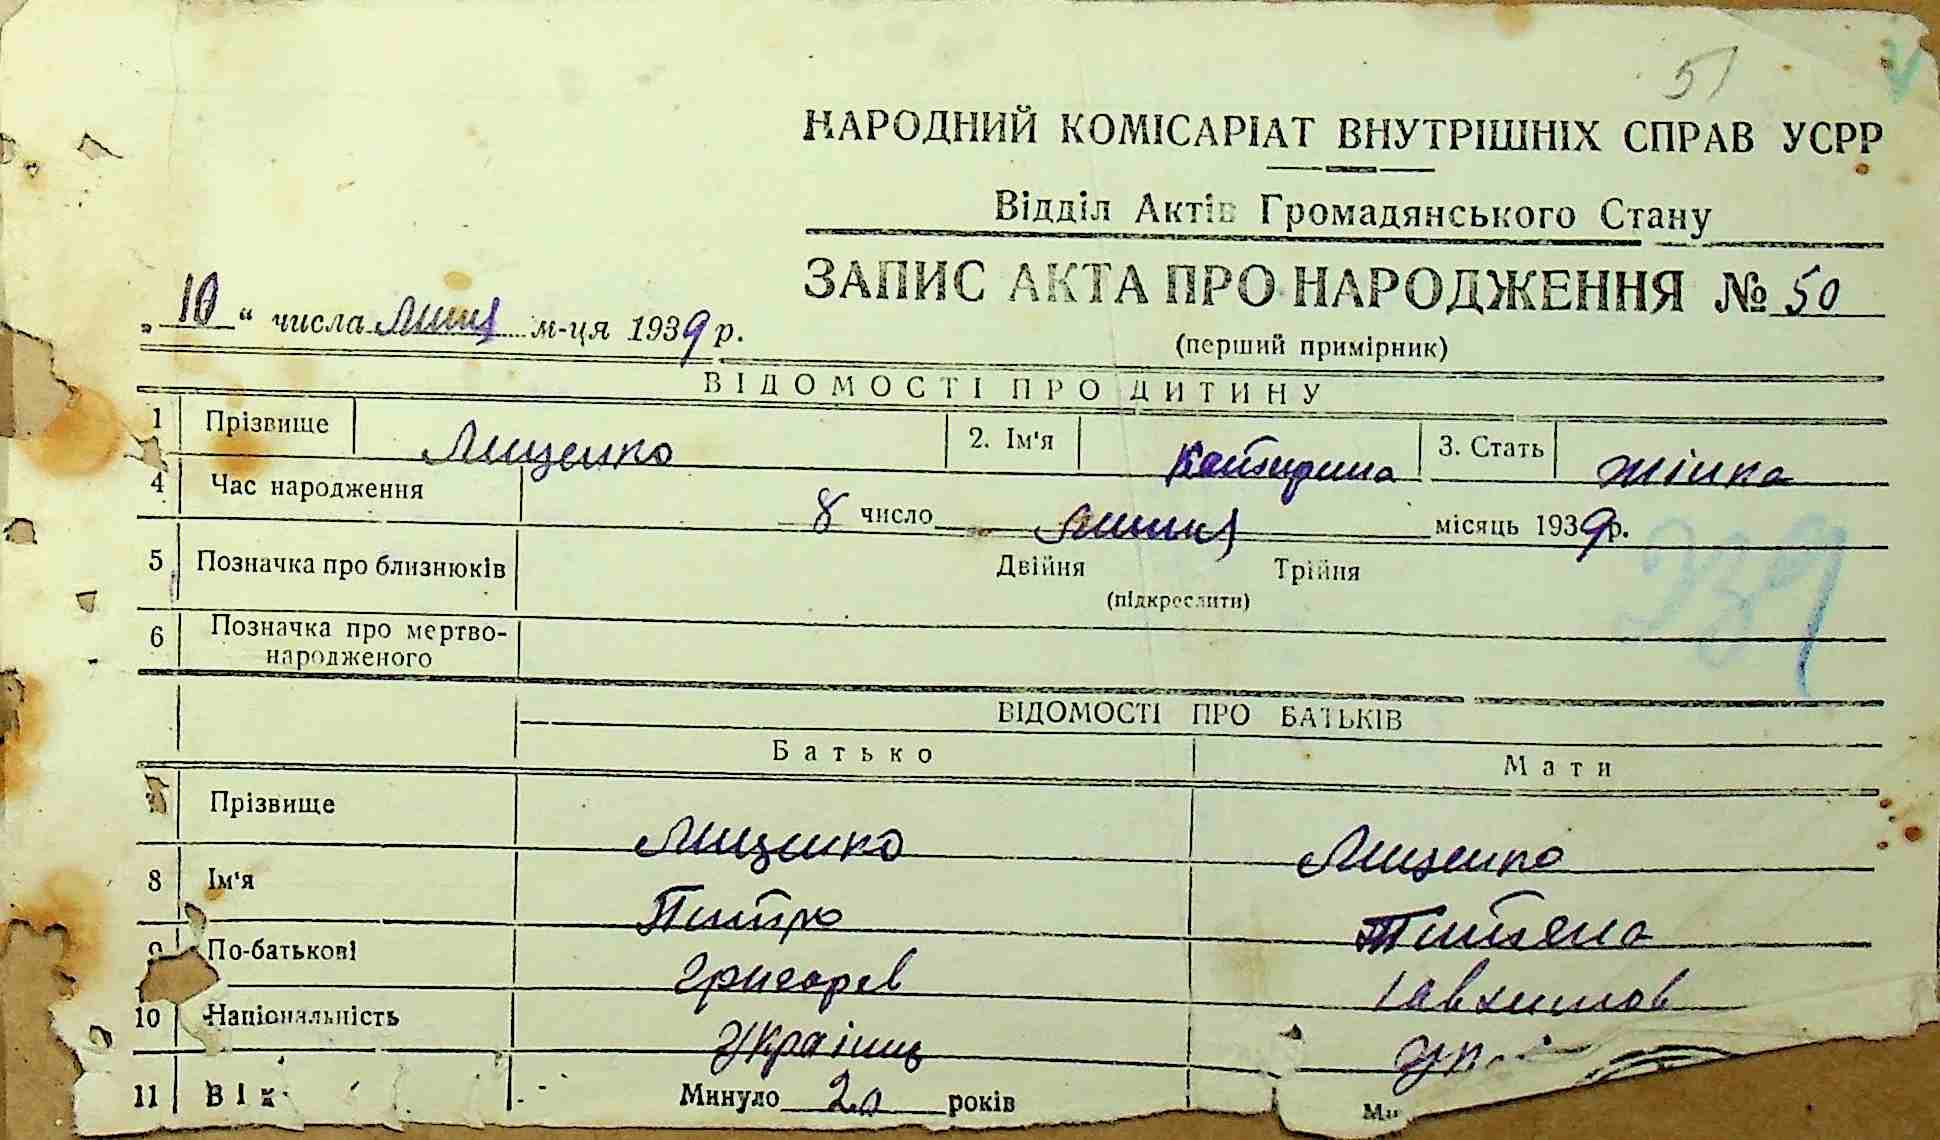 51
НАРОДНИЙ КОМІСАРІАТ ВНУТРІШНІХ СПРАВ УСРР
Відділ Актів Громадянського Стану
ЗАПИС АКТА ПРО НАРОДЖЕННЯ № 50
„10“ числа липня м-ця 1939 р.
(перший примірник)
ВІДОМОСТІ ПРО ДИТИНУ
1 Прізвище Лищенко 2. Ім'я Катерина 3. Стать жінка
4 Час народження 8 число липня місяць 1939 р.
5 Позначка про близнюків Двійня Трійня
(підкреслити)
939
6 Позначка про мертво-
народженого
ВІДОМОСТІ ПРО БАТЬКІВ
Батько Мати
7 Прізвище Лищенко Лищенко
8 Ім'я Питро Титяна
9 По-батькові Григорев
10 Національність Україниць Ук
11 Вік Минуло 20 років Ми